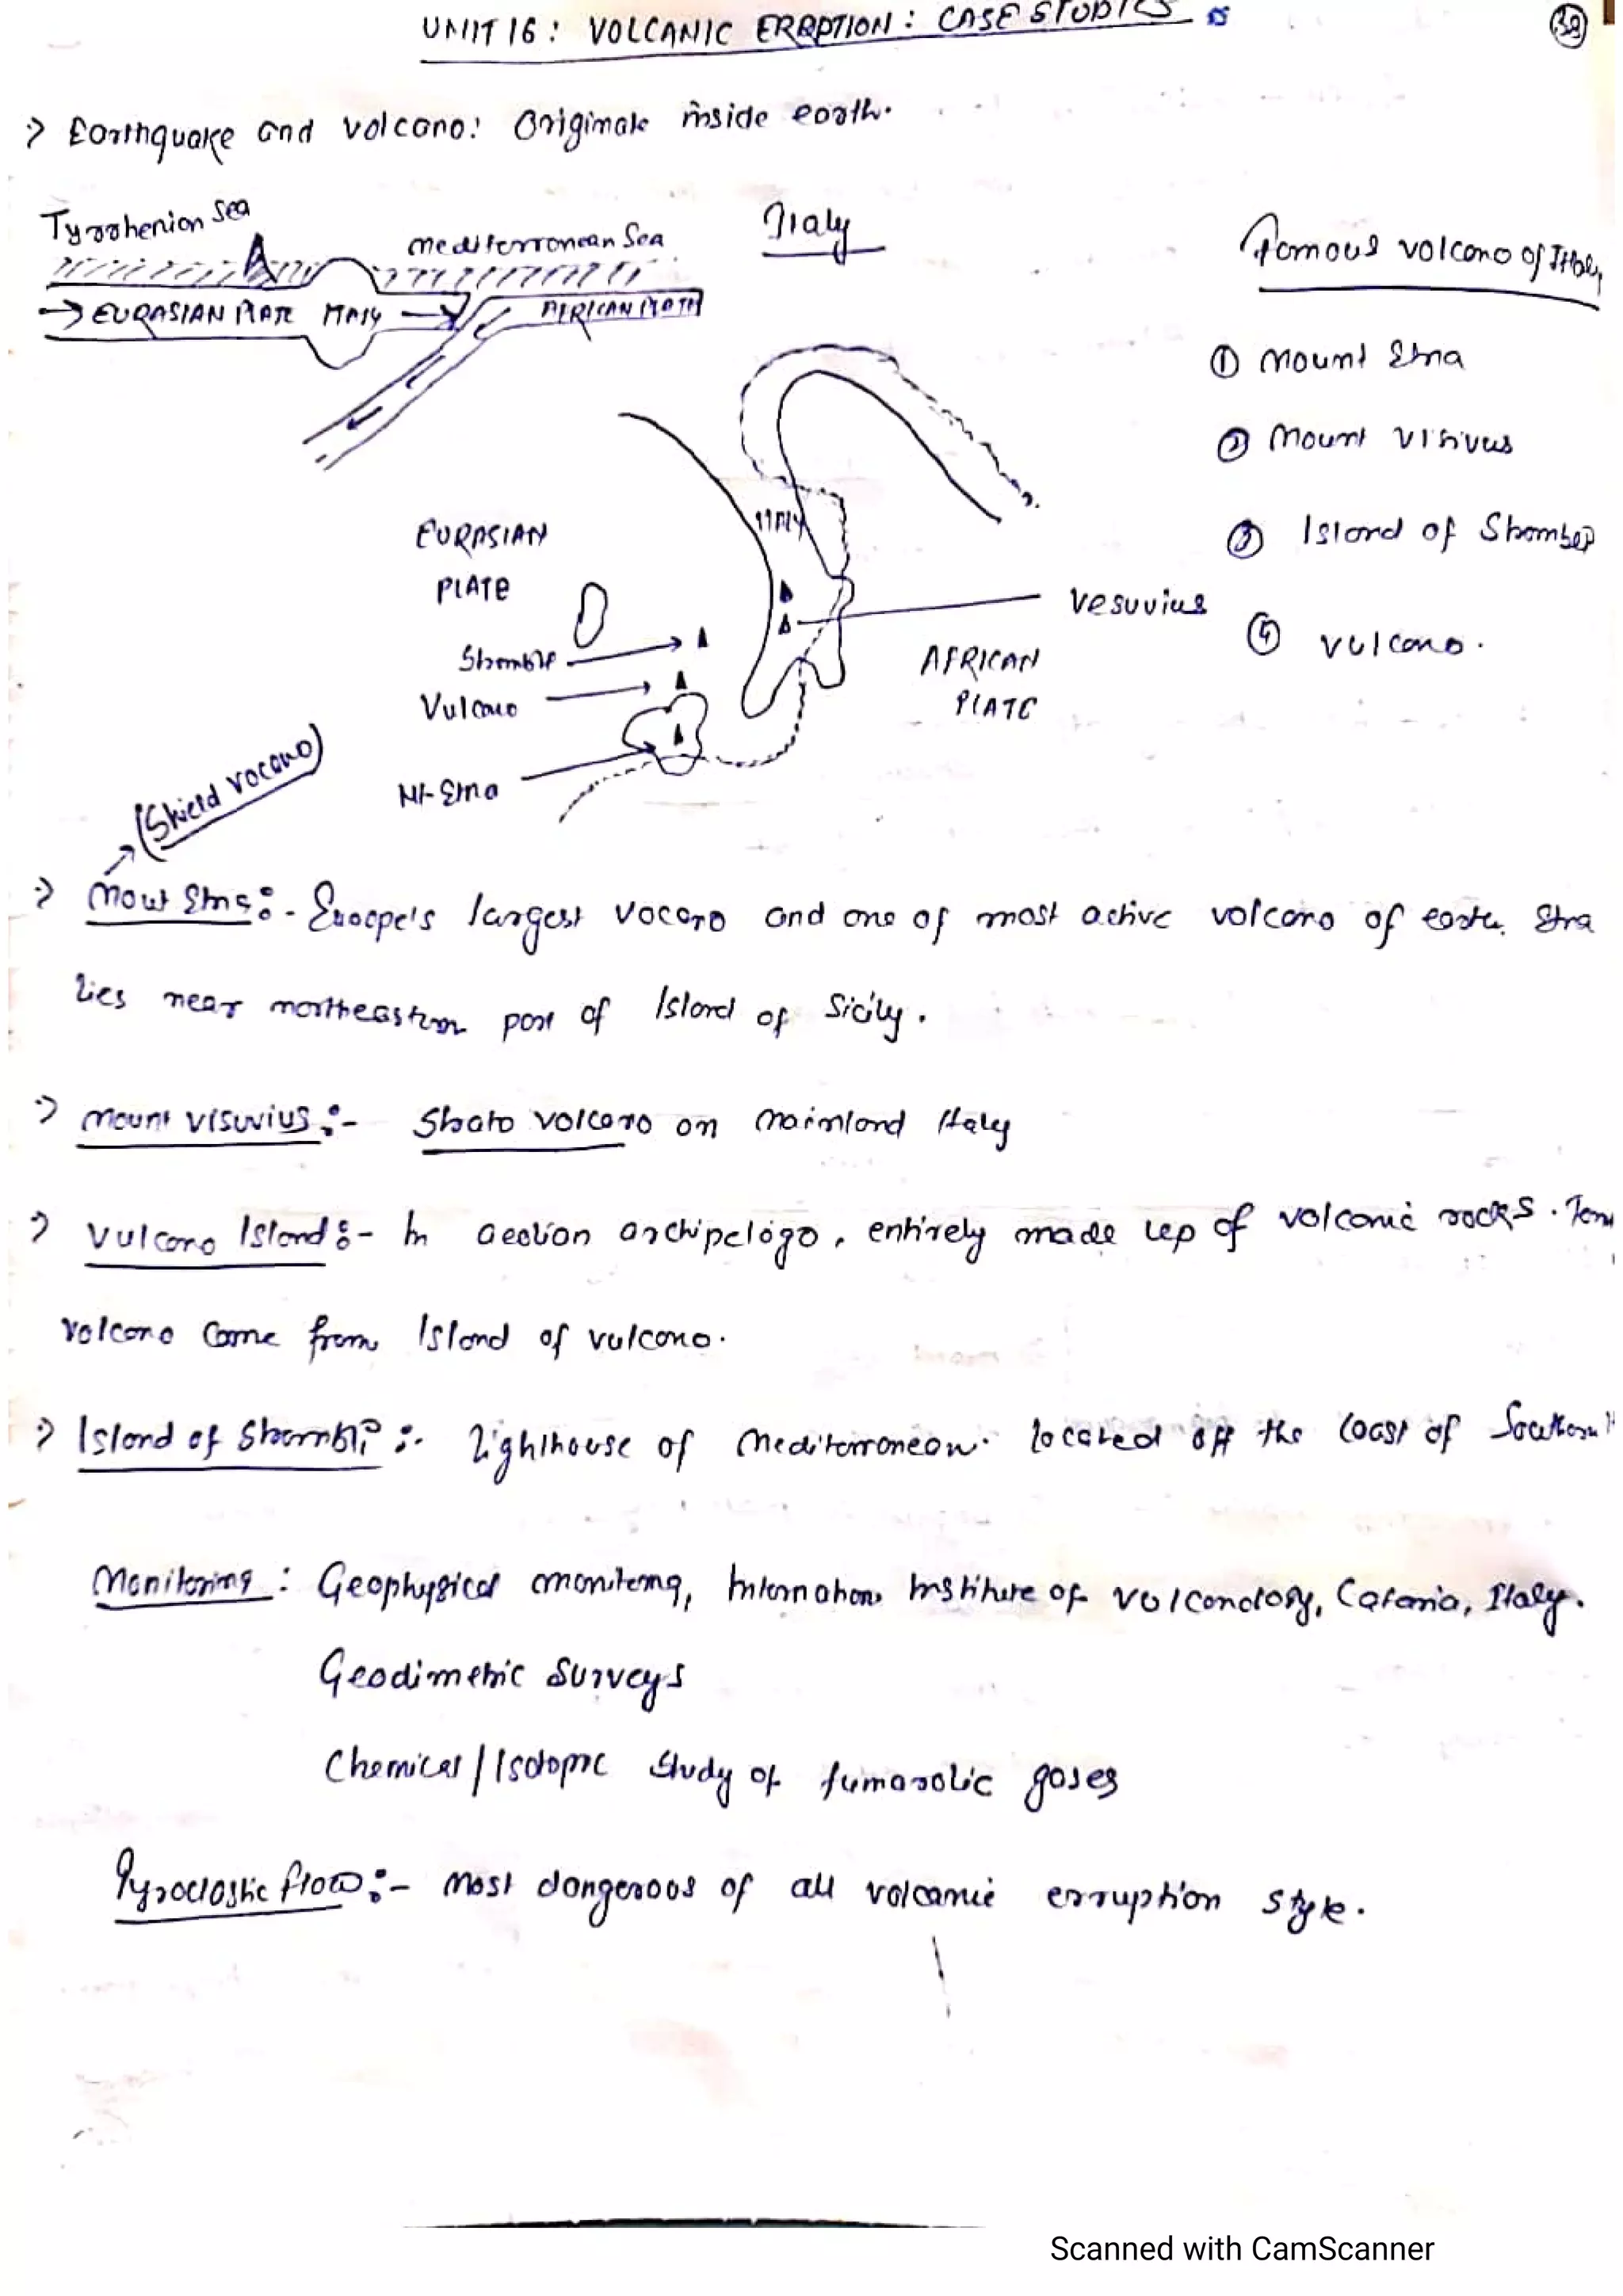 UNIT 16 : VOLCANIC ERRPTION : CASE STUDIES
39
Earthquake and volcano: Originate inside earth.
Tyrrhenian Sea
Mediterranean Sea
Italy
Famous volcano of Italy
EURASIAN PLATE ITALY
AFRICAN PLATE
① Mount Etna
② Mount Visivus
③ Island of Stromboli
④ Vulcano.
ITALY
EURASIAN
PLATE
Vesuvius
Stromboli
Vulcano
AFRICAN
PLATE
Mt-Etna
(Shield Vocano)
Mout Etna :- Euocpe's largest vocano and one of most active volcano of earth. Etna
lies near northeastern part of Island of Sicily.
Mount Visuvius :- Strato volcano on mainland Italy
Vulcano Island :- In aeolian archipelago, entirely made up of volcanic rocks. Term
Volcano Came from Island of vulcano.
Island of Stromboli :- Lighthouse of Mediterranean. located off the coast of Southern
Monitoring : Geophysical monitoring, International Institute of Volcanology, Catania, Italy.
Geodimetric Surveys
Chemical / Isotopic Study of fumarolic gases
Pyroclastic flow :- Most dangeroos of all volcanic erruption style.
Scanned with CamScanner